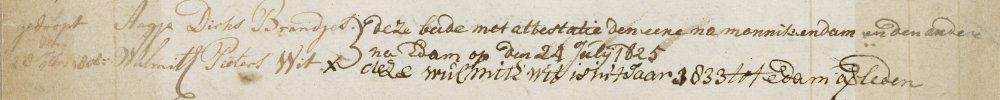 gedoopt Aagje Dirks Brandjes } deze beide met attestatie den eene na monnikendam en den andere
Walmitſ Pieters Wit x na Edam op den 24 July 1825
deze wulmitſ wit is hit Jaar 1833 tot Edam afleden